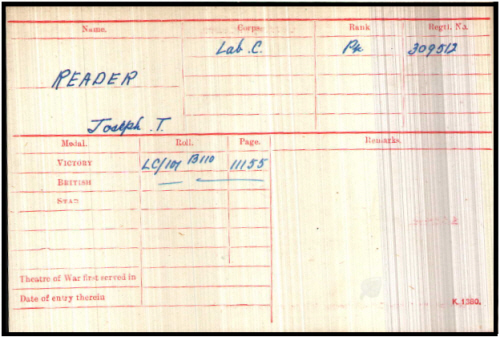 Name. Corps. Rank Regtl. No.
Lab. C. Pte 309512
READER
Joseph .T.
Medal. Roll. Page. Remarks.
VICTORY LC/101 B110 11155
BRITISH
STAR
Theatre of War first served in
Date of entry therein
K. 1380.